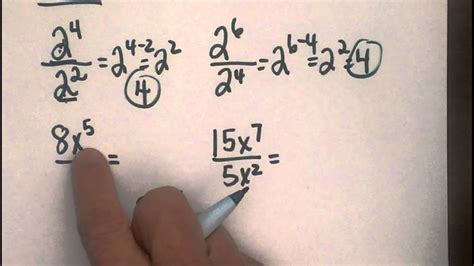 2⁴/2² = 2⁴⁻² = 2² = 4
2⁶/2⁴ = 2⁶⁻⁴ = 2² = 4
8x⁵ =
15x⁷/5x² =